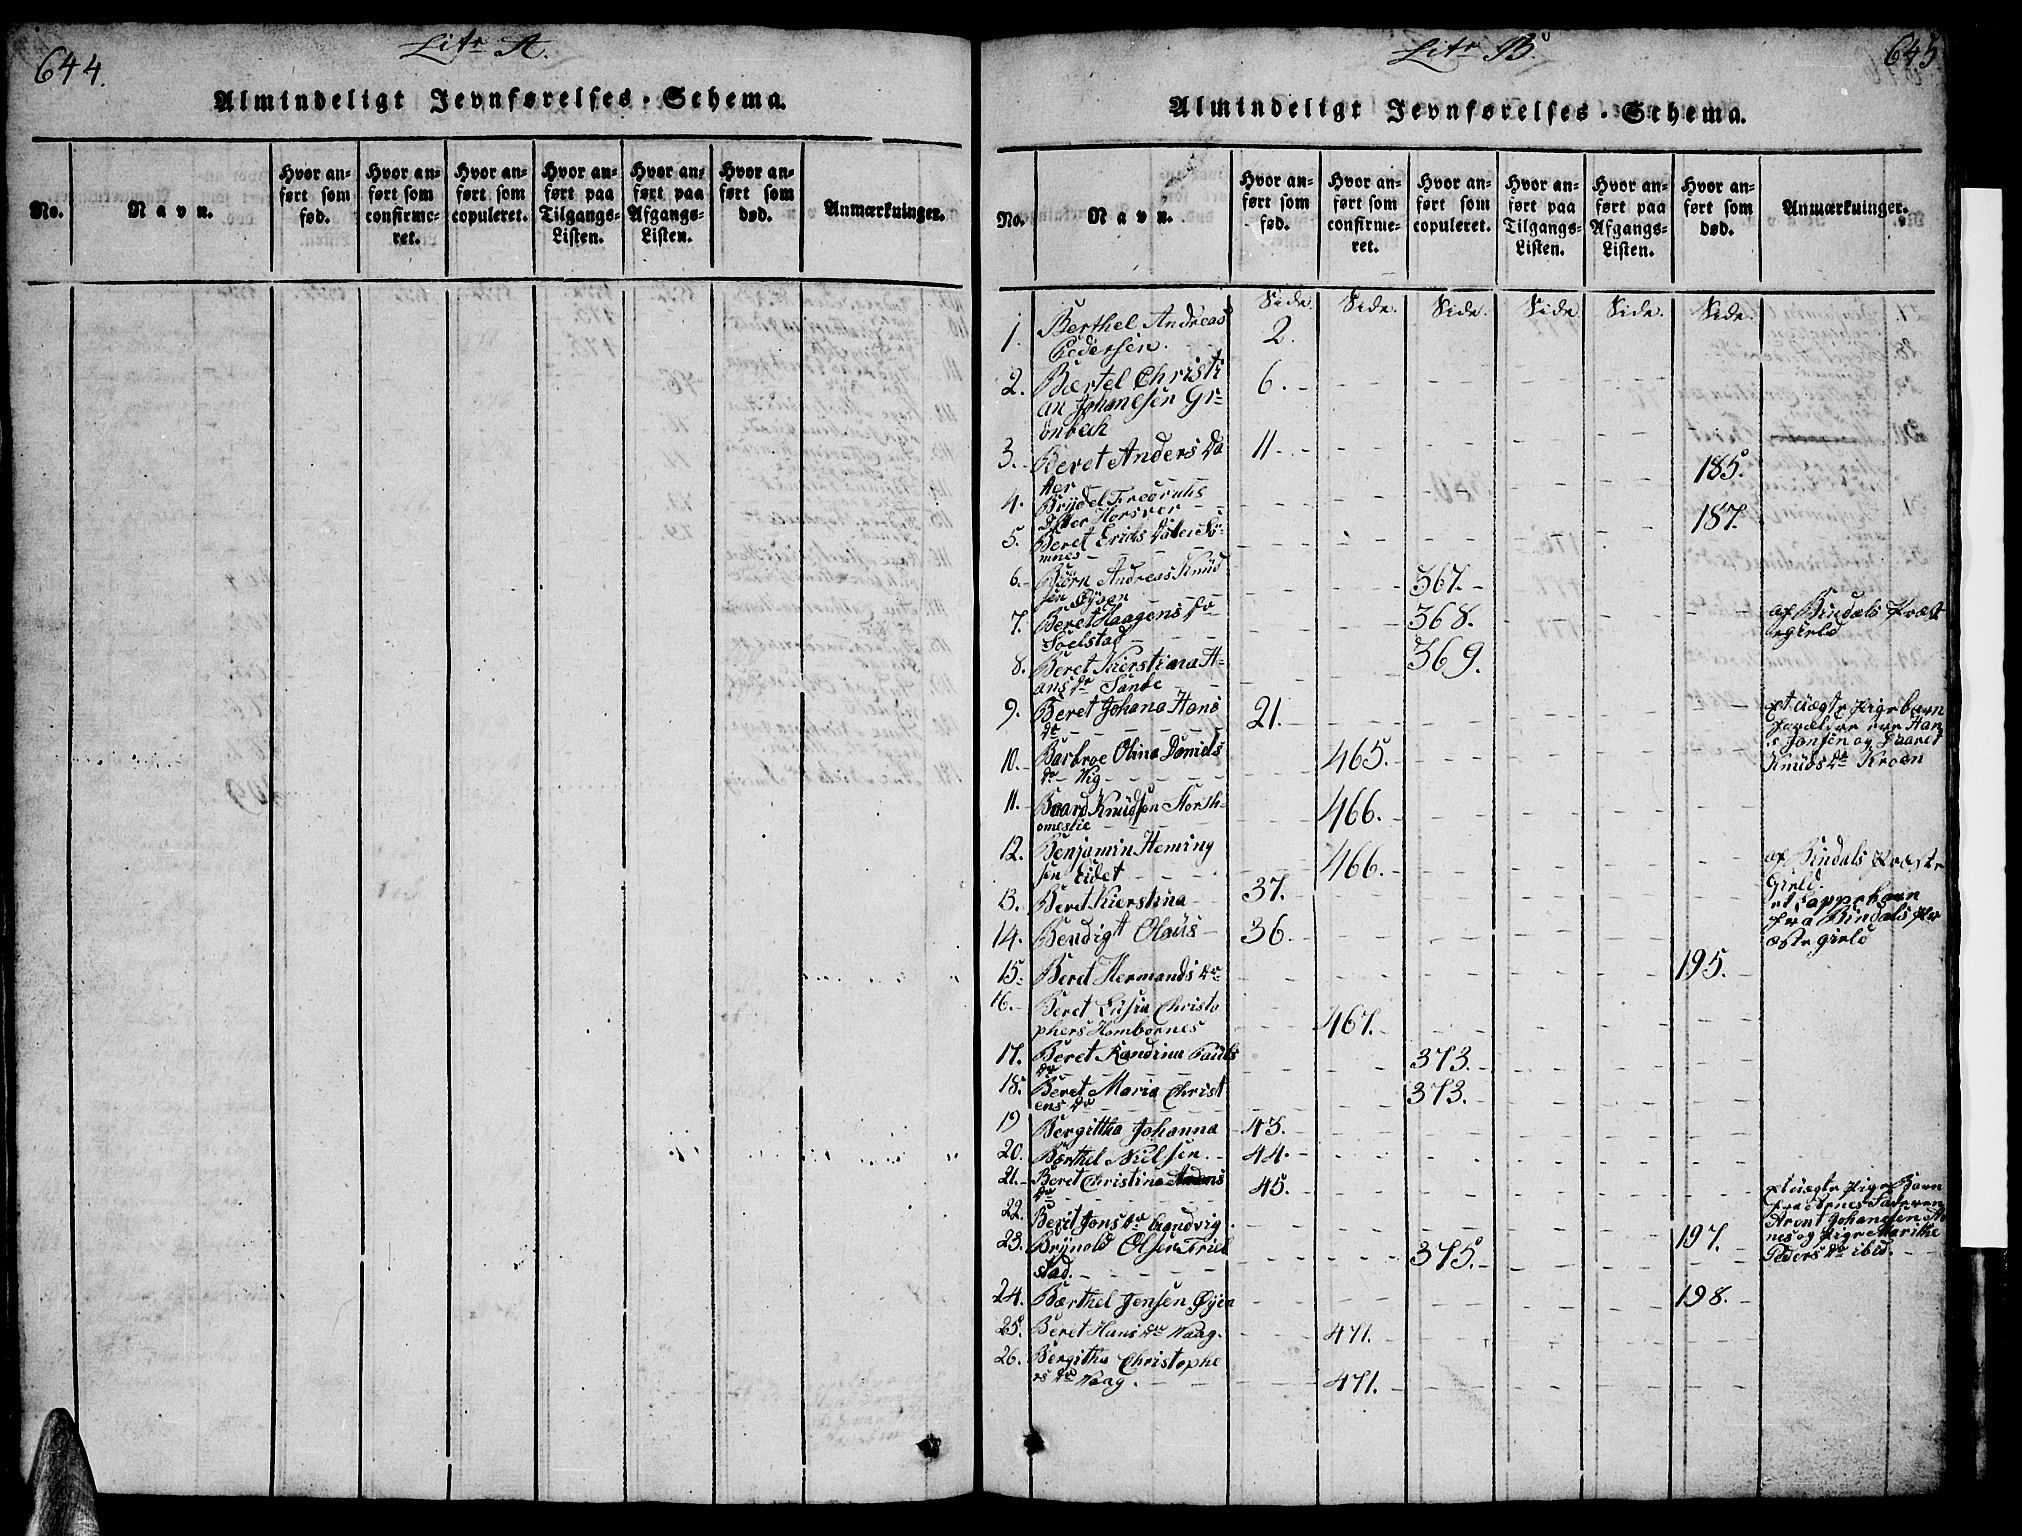 644.
Litr A.
Almindeligt Jevnførelses-Schema.
No.
Navn.
Hvor anført som fød.
Hvor anført som confirmeret.
Hvor anført som copuleret.
Hvor anført paa Tilgangs-Listen.
Hvor anført paa Afgangs-Listen.
Hvor anført som død.
Anmærkninger.
Litr B.
645
Almindeligt Jevnførelses-Schema.
No.
Navn.
Hvor anført som fød.
Hvor anført som confirmeret.
Hvor anført som copuleret.
Hvor anført paa Tilgangs-Listen.
Hvor anført paa Afgangs-Listen.
Hvor anført som død.
Anmærkninger.
Side. Side. Side. Side. Side. Side.
1. Berthel Andreas
Pedersen. 2.
2. Bærtel Christi
an Johansen Gr-
önbech 6.
3. Beret Anders Da
tter 11. 185.
4. Brydel
Datter Horsver 187.
5. Beret Erids Datter Sö-
mnes
6. Björn Andreas Knüd
sen Öÿen 367.
7. Beret Haagens Dr
Soelstad 368. af Bindals Præst
egield
8. Beret Kierstina H-
ans Dr Sande 369.
9. Beret Johana Hans
Dr 21. et üægte Pigebarn
forældre ere Han
s Jonsen og Maret
Knüds Dr Kroen
10. Barbroe Olina Daniels
Dr Vig 465.
11. Baard Knüdsen Horsh-
omestie 466.
12. Benjamin Heming
sen Eidet 466. af Bindals Præste
Gield.
13. Beret Kierstina 37. et Lappebarn
fra Bindals Pr
æstegield
14. Bendigt Olaüs 36.
15. Beret Hermands Dr 195.
16. Beret Lusia Christo
phers Hombornes 467.
17. Beret Randina Pauls
Dr 373.
18. Beret Maria Christ
ens Dr 373.
19 Bergittha Johanna 43.
20. Bærthel Nielsen. 44.
21. Beret Christina
Dr 45. et üægte Pige Barn
Aront Johansen
nes og Pige Marithe
Peders Dr ibid.
22. Berit Jons Dr Sandvig. 197.
23. Brynold Olsen Triel
stad. 375.
24. Bærthel Jensen Øyen 198.
25. Beret Hans Dr Vaag. 471.
26. Bergitha Christophe
rs Dr Vaag. 471.